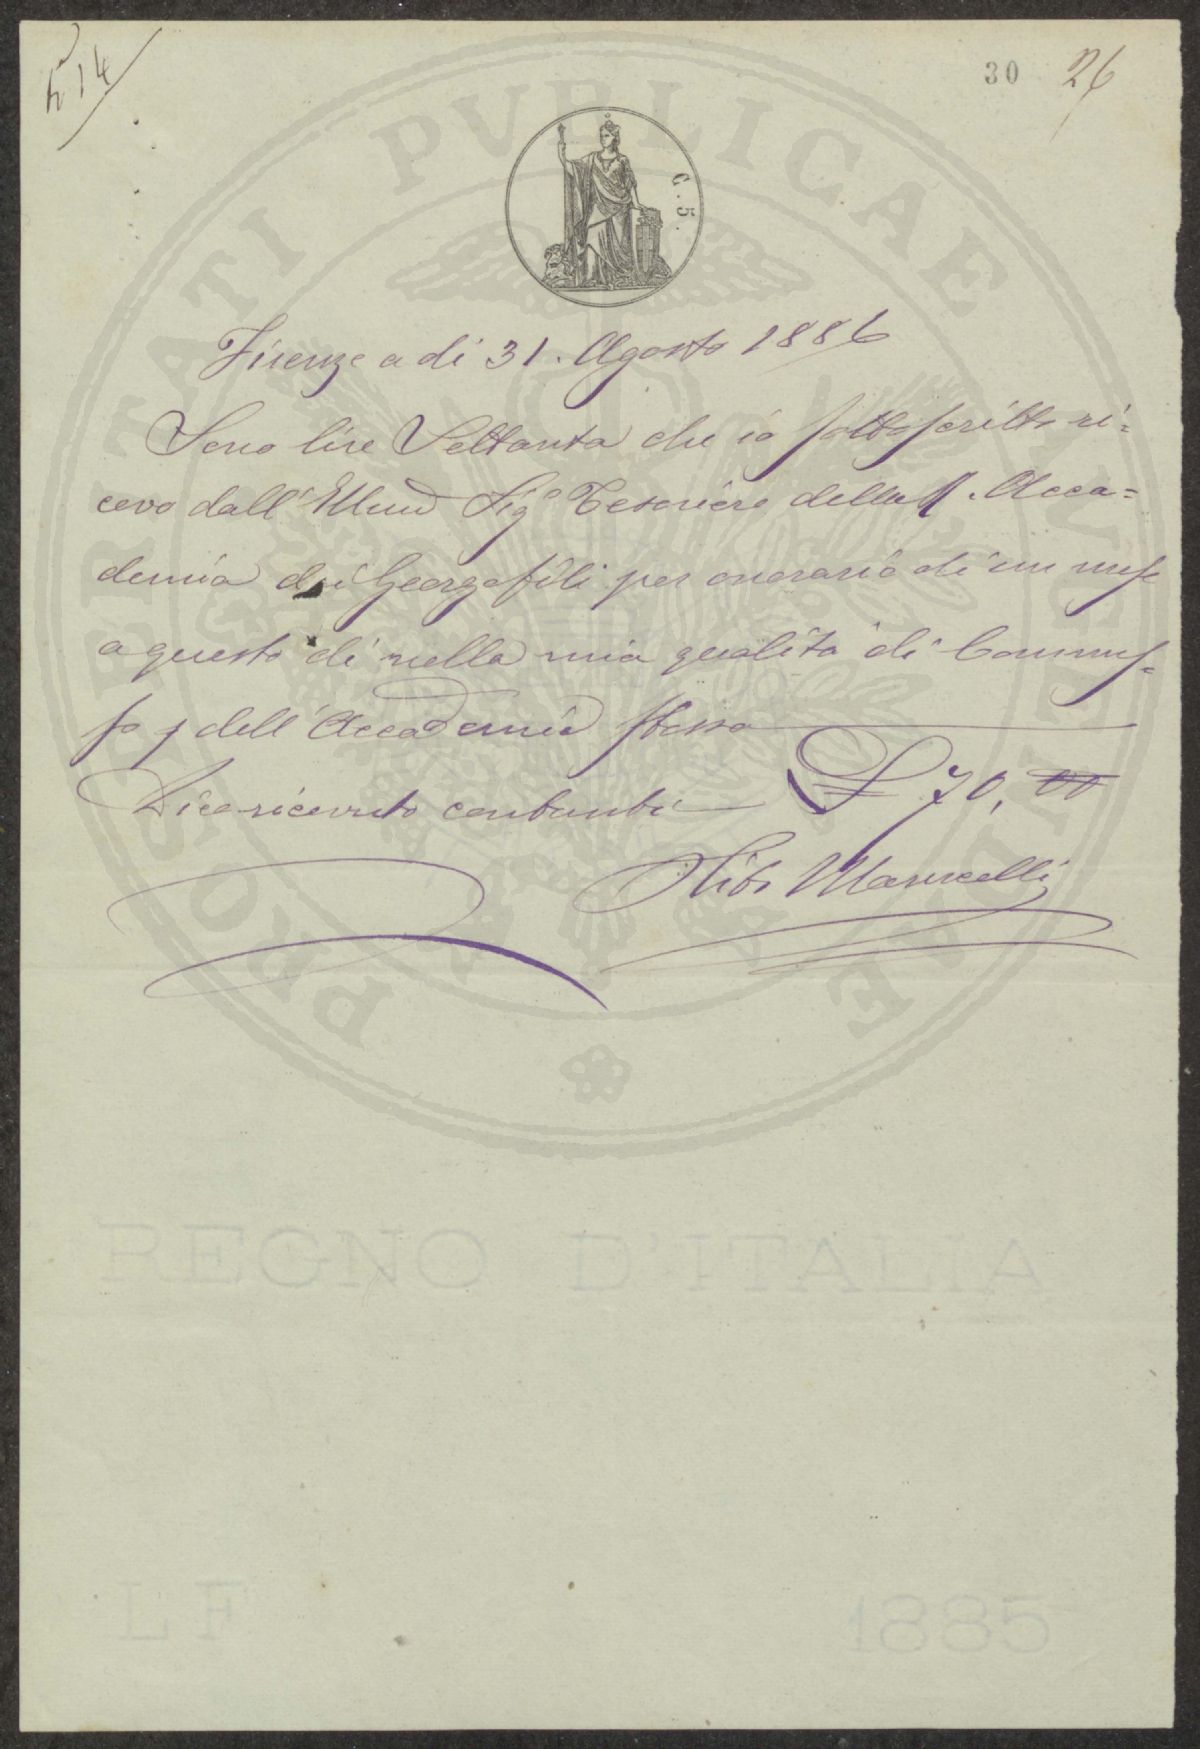 N 14
30 26
C. 5.
PROSPERITATI PUBLICAE AUGENDAE
Firenze a di 31. Agosto 1886
Sono lire Settanta che io sottoscritto ri=
cevo dall' Illmo Sigr Tesoriere della R. Acca=
demia dei Georgofili per onorario di un mese
a questo dì nella mia qualità di Commes=
so dell' Accademia stessa
£ 70, 00
Dico ricevuto contanti
Marucelli
REGNO D'ITALIA
LF 1885